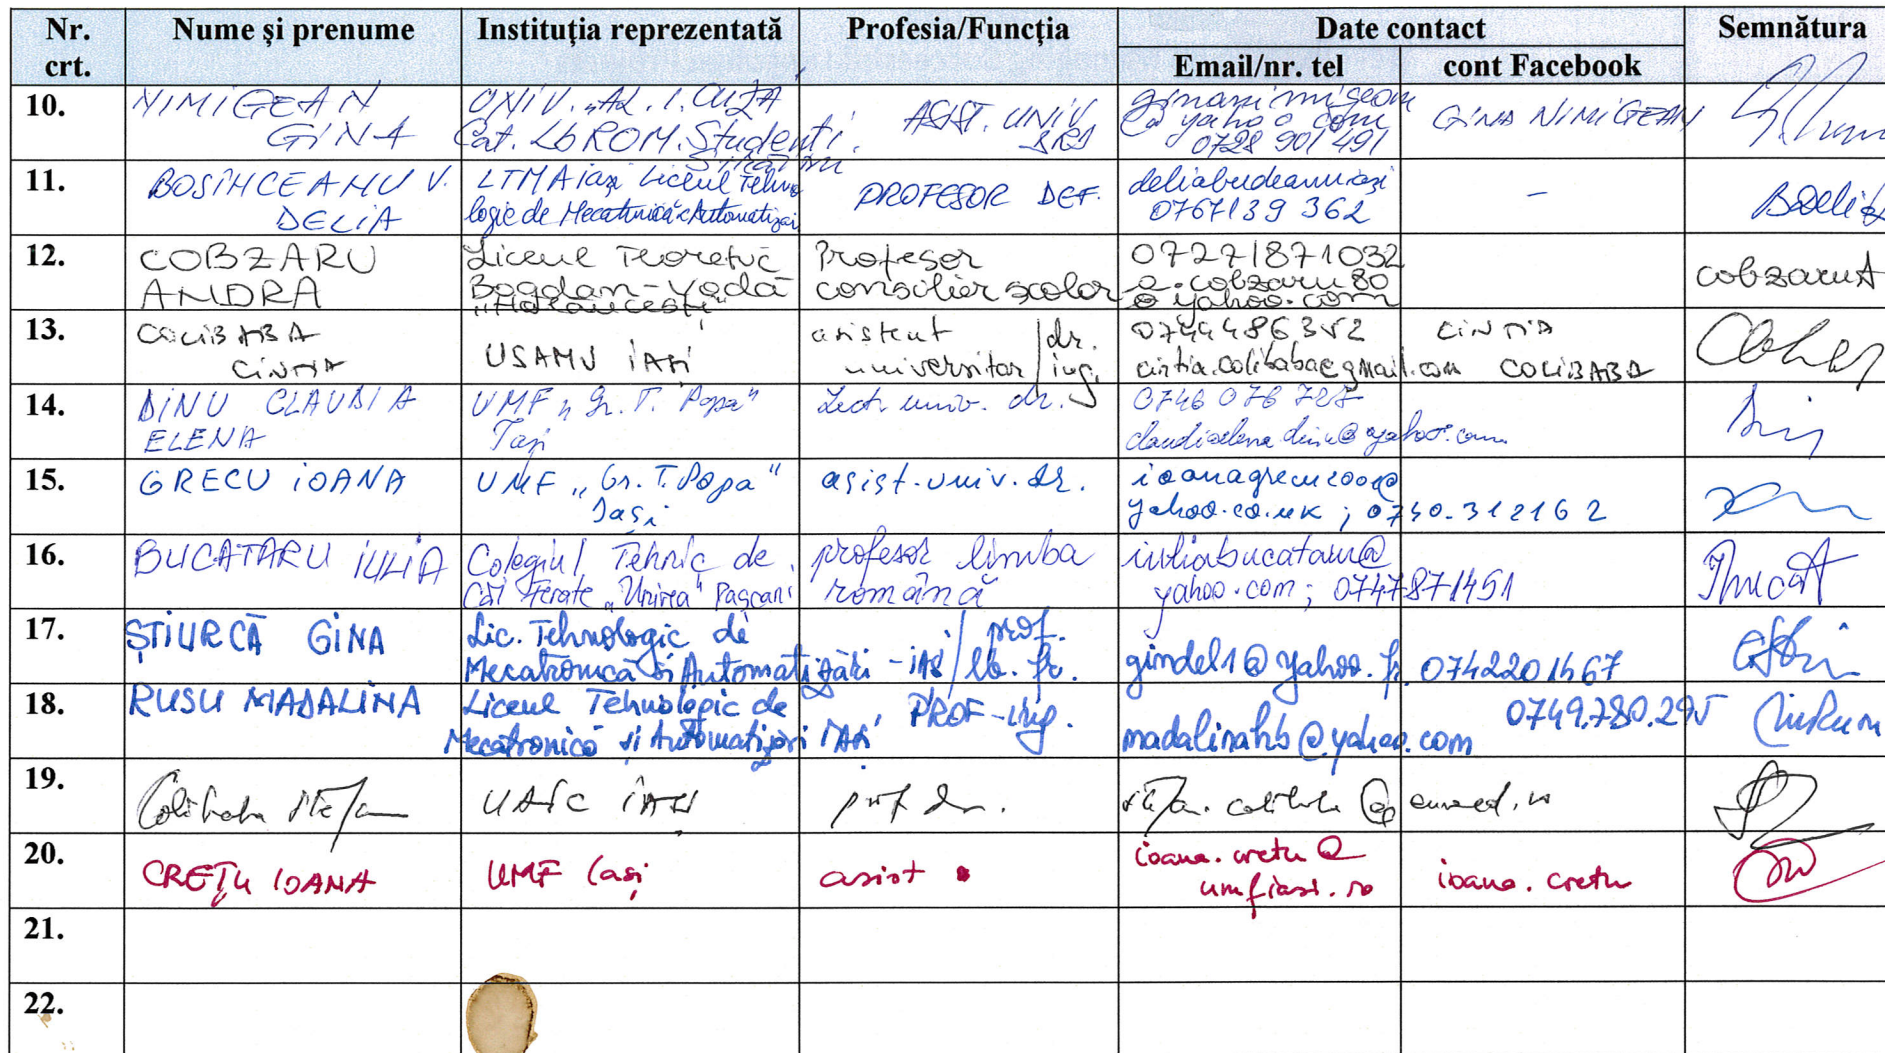 Nr. crt. Nume și prenume Instituția reprezentată Profesia/Funcția Date contact Semnătura
Email/nr. tel cont Facebook
10. NIMIGEAN GINA UNIV. "AL. I. CUZA Cat. Lb ROM. Studenți Străini ASIST. UNIV @ yahoo.com 0728 901 491 GINA NIMIGEAN
11. BOSÎNCEANU V. DELIA LTMA Iași Liceul Tehno
logic de Mecatronică și Automatizări PROFESOR DEF. deliabudeanuiasi 0767139 362 -
12. COBZARU ANDRA Liceul Teoretic Bogdan-Vodă Profesor consilier școlar 0727/871032 a.cobzaru80 @ yahoo.com cobzaruA
13. COLIBABA CINTIA USAMV IAȘI asistent universitar / dr. ing. 0744486352 cintia.colibaba@gmail.com CINTIA COLIBABA
14. DINU CLAUDIA ELENA UMF "Gr. T. Popa" Iași Lect. univ. dr. 0746 076 727 claudiaelena.dinu@yahoo.com
15. GRECU IOANA UMF „Gr. T. Popa" Iași asist. univ. dr. ioanagrecu2001@
yahoo.co.uk ; 0740.312162
16. BUCATARU IULIA Colegiul Tehnic de
Căi Ferate „Unirea" Pașcani profesor limba română iuliabucataru@
yahoo.com ; 0747871451
17. ȘTIURCĂ GINA Lic. Tehnologic de
Mecatronică și Automatizări - IAȘI / prof. lb. fr. gindel1@yahoo.fr 0742201667
18. RUSU MADALINA Liceul Tehnologic de
Mecatronică și Automatizări IAȘI PROF-ing. madalinahb@yahoo.com 0749.780.295
19. Colibaba Ștefan UAIC IAȘI prof dr. stefan.colibaba @ euroed.ro
20. CREȚU IOANA UMF Iași asist. ioana.cretu @
umfiasi.ro ioana.cretu
21.
22.